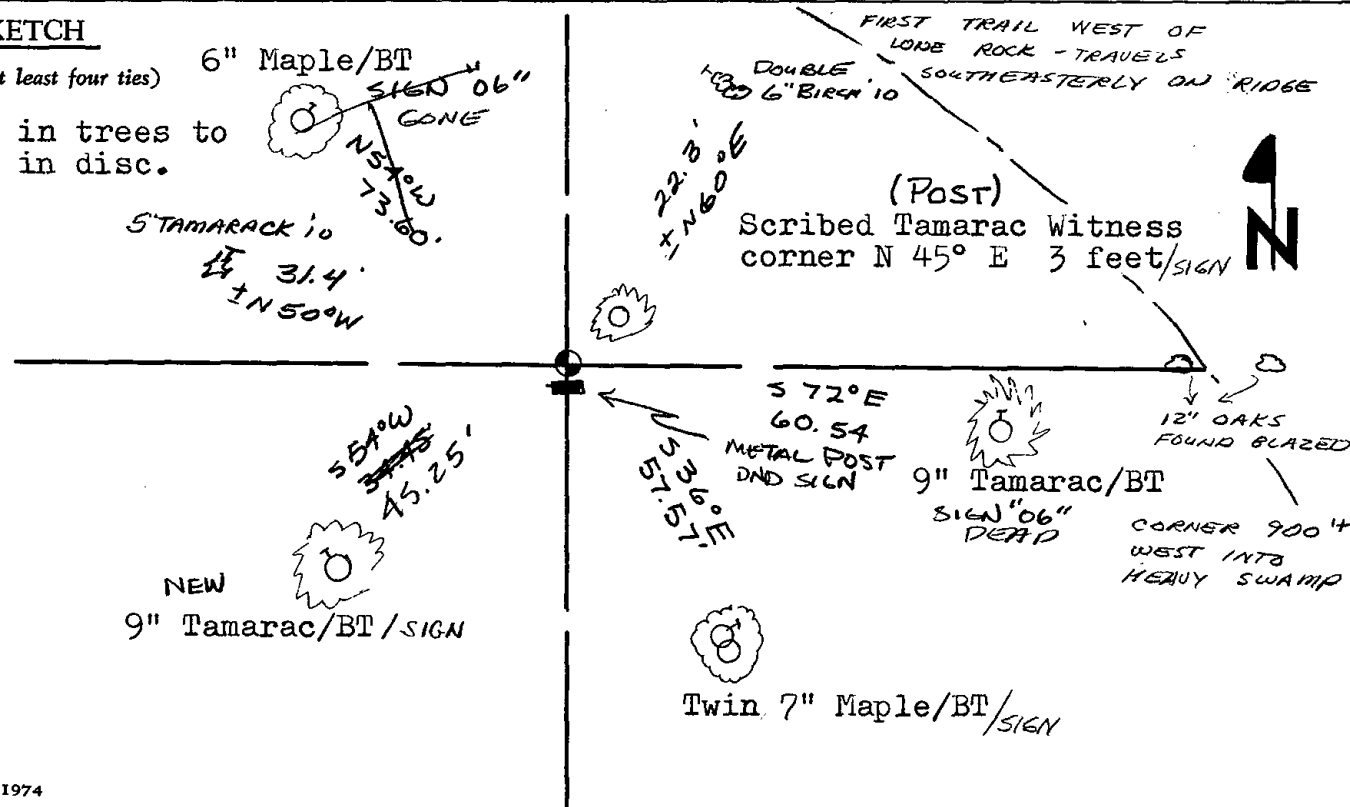 KETCH
t least four ties)
6" Maple/BT
SIGN 06"
GONE
in trees to
in disc.
N54°W
73.60'
5" TAMARACK '10
31.4'
± N 50°W
DOUBLE
6" BIRCH '10
22.3'
± N 60°E
FIRST TRAIL WEST OF
LONE ROCK - TRAVELS
SOUTHEASTERLY ON RIDGE
(POST)
Scribed Tamarac Witness
corner N 45° E 3 feet/SIGN
N
S 72°E
60.54
METAL POST
DND SIGN
S 36°E
57.57'
9" Tamarac/BT
SIGN "06"
DEAD
12" OAKS
FOUND BLAZED
CORNER 900'+
WEST INTO
HEAVY SWAMP
S 54°W
34.45'
45.25'
NEW
9" Tamarac/BT/SIGN
Twin 7" Maple/BT/SIGN
1974